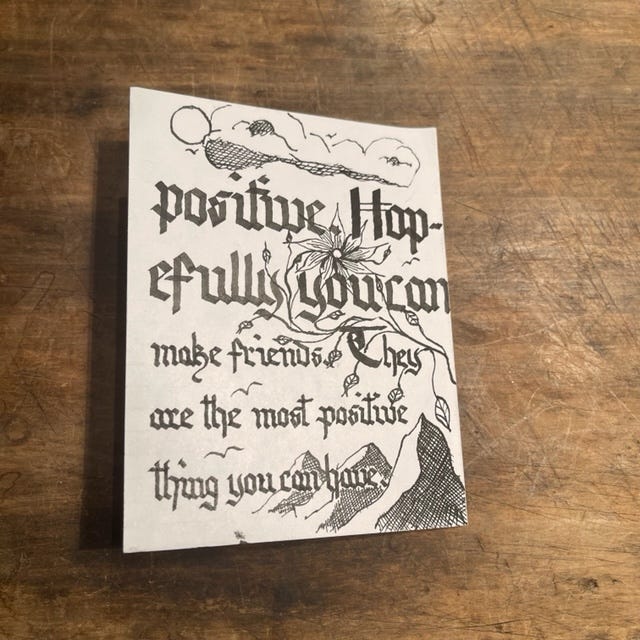 positive. Hop-
efully you can
make friends. They
are the most positive
thing you can have.